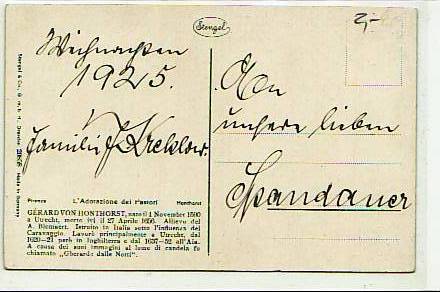 Stengel
2,-
Weihnachten
1925.
Familie J. Krcklow.
An
unsere lieben
Spandauer
Stengel & Co., G. m. b. H., Dresden
Made in Germany
Firenze L'Adorazione dei Pastori Honthorst
GÉRARD VON HONTHORST, nato il 4 November 1590
a Utrecht, morto ivi il 27 Aprile 1656. Allievo del
A. Bloemaert. Istruito in Italia sotto l'influenza del
Caravaggio. Lavorò principalmente a Utrecht, dal
1620-21 però in Inghilterra e dal 1637-52 all'Aia.
A causa dei suoi immagini al lume di candela fu
chiamato „Gherardo dalle Notti".